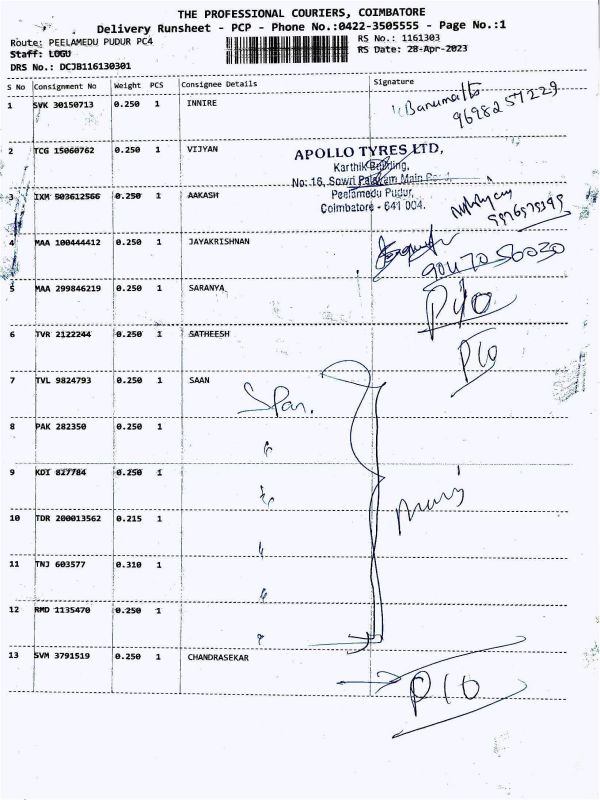 THE PROFESSIONAL COURIERS, COIMBATORE
Delivery Runsheet - PCP - Phone No.:0422-3505555 - Page No.:1
Route: PEELAMEDU PUDUR PC4
RS No.: 1161303
Staff: LOGU
RS Date: 28-Apr-2023
DRS No.: DCJB116130301
S No Consignment No Weight PCS Consignee Details Signature
1 SVK 30150713 0.250 1 INNIRE
Banumathi
9698257229
2 TCG 15060762 0.250 1 VIJYAN
APOLLO TYRES LTD,
Karthik Building,
No: 16, Sowri Palayam Main Road,
Peelamedu Pudur,
Coimbatore - 641 004.
3 IXM 503612566 0.250 1 AAKASH
4 MAA 100444412 0.250 1 JAYAKRISHNAN
90470 56030
5 MAA 299846219 0.250 1 SARANYA
P10
6 TVR 2122244 0.250 1 SATHEESH
P10
7 TVL 9824793 0.250 1 SAAN
8 PAK 282350 0.250 1
9 KDI 827784 0.250 1
10 TDR 200013562 0.215 1
11 TNJ 603577 0.310 1
12 RMD 1135470 0.250 1
13 SVM 3791519 0.250 1 CHANDRASEKAR
P10